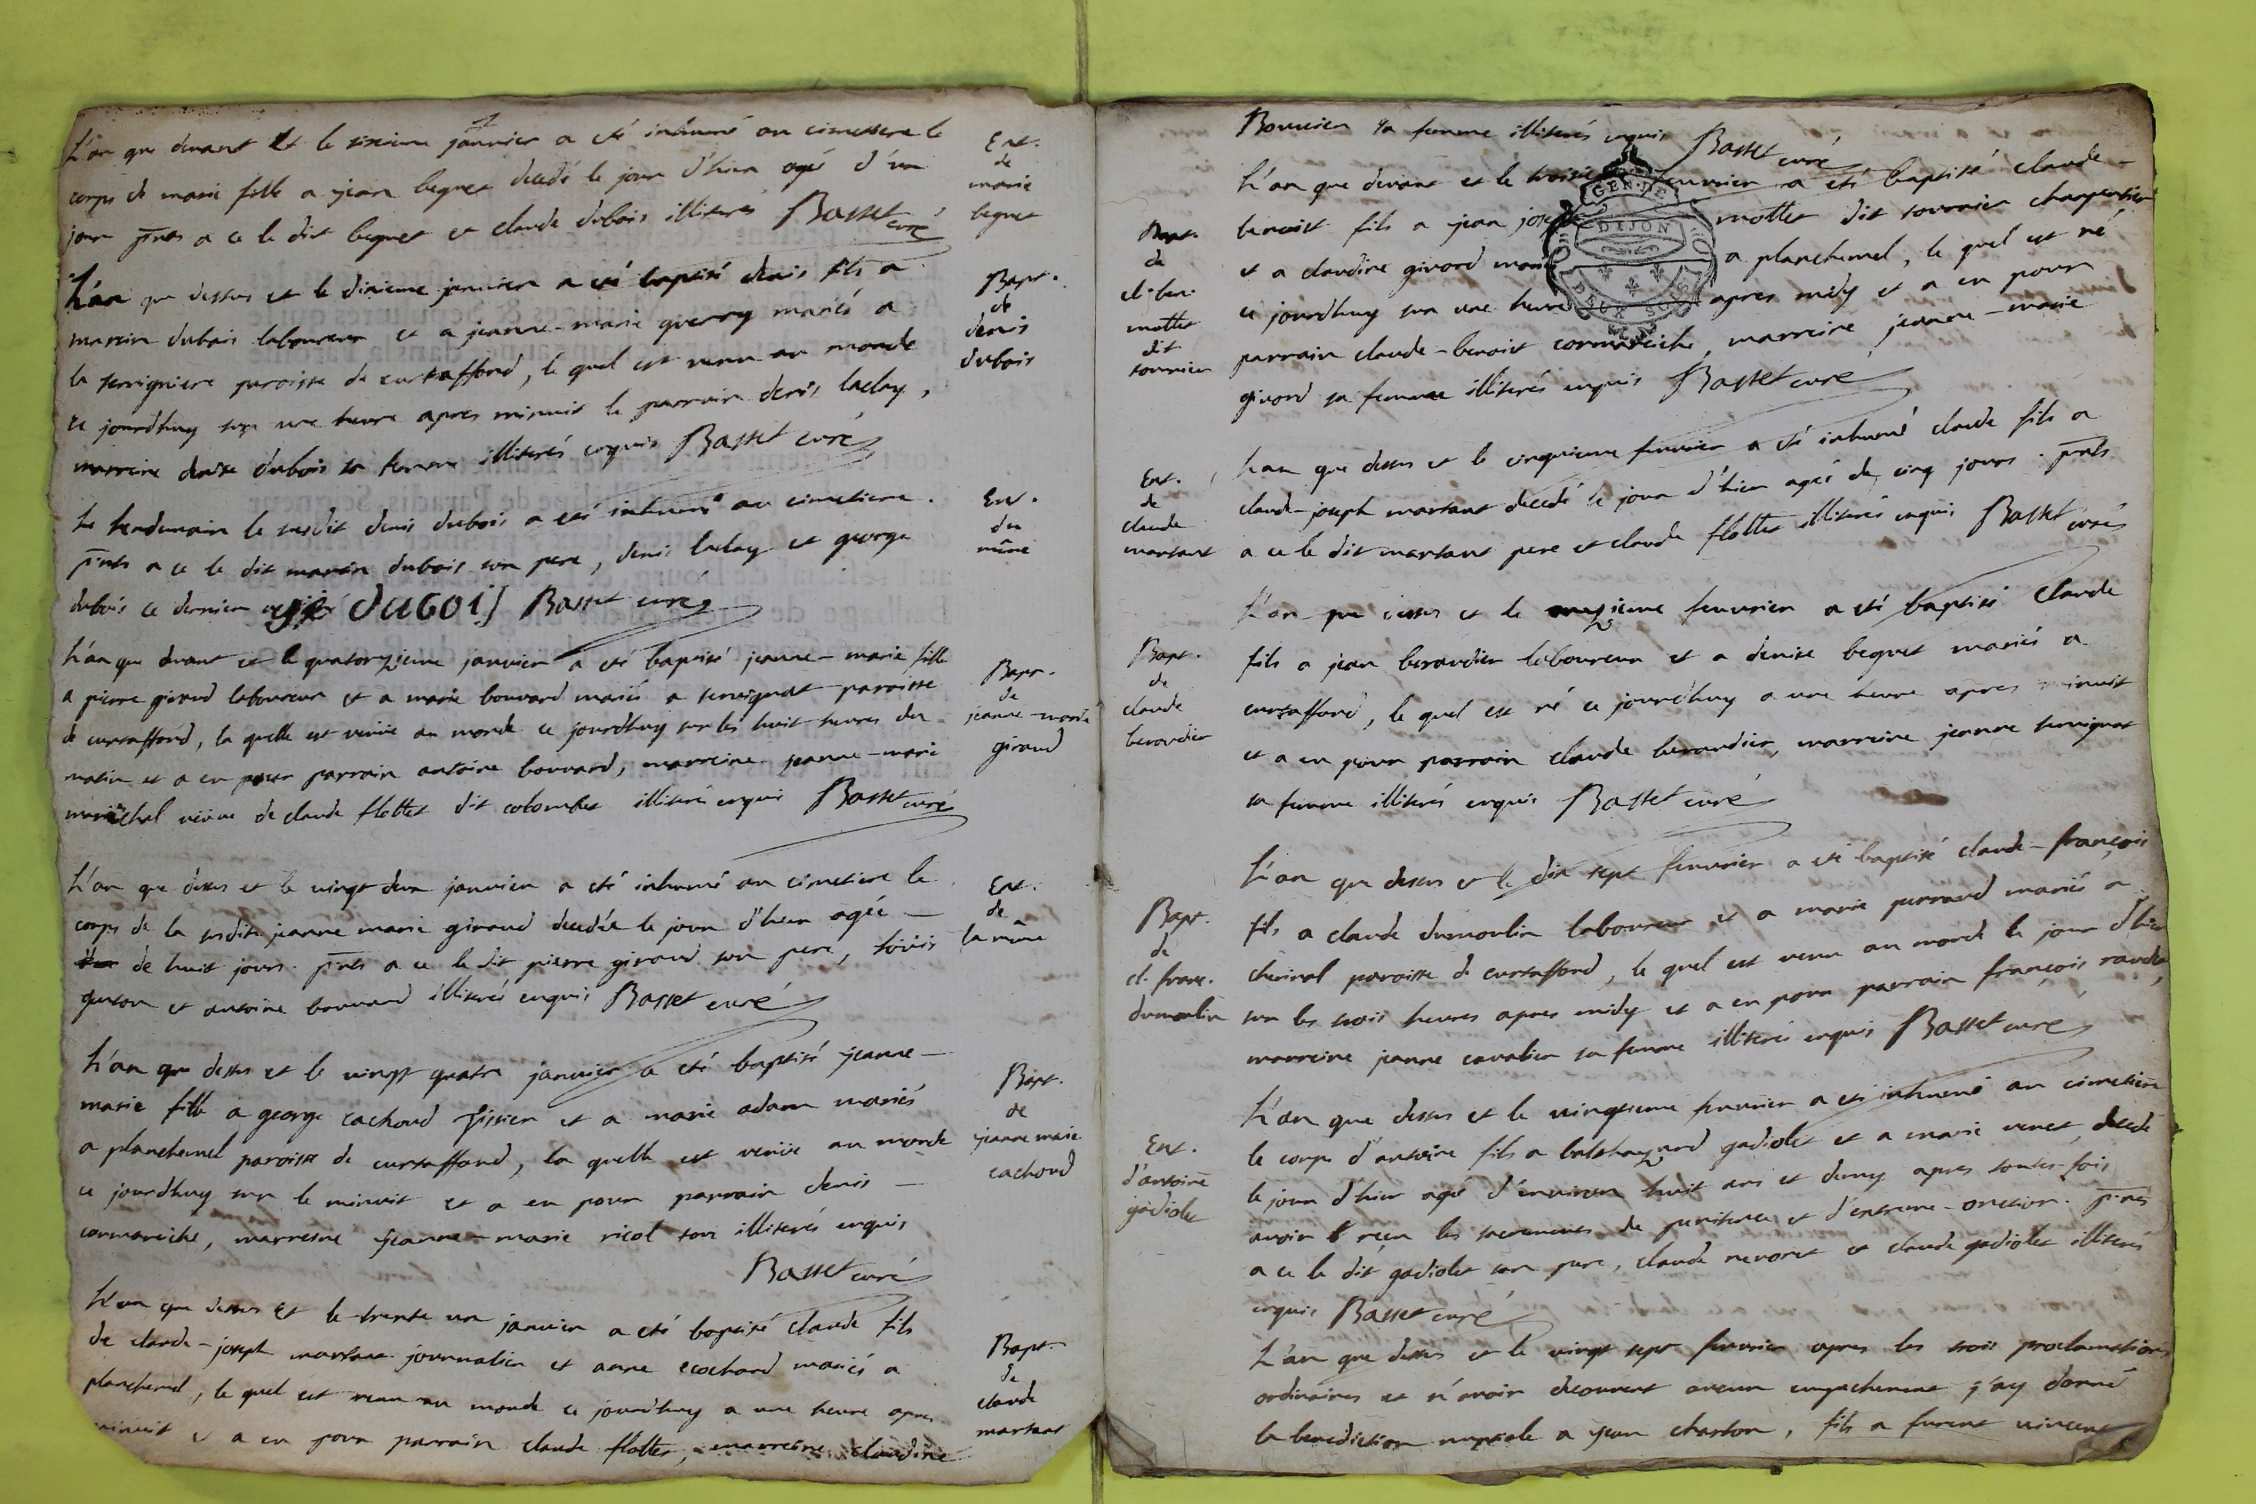 L'an que devant et le sixieme janvier a eté inhumé au cimettere le
corps de marie fille a jean beguet decedé le jour d'hier agé d'un
jour p̄nts a ce le dit beguet et claude dubois illiterés Basset curé
Ent.
de
marie
beguet
L'an que dessus et le dixieme janvier a eté baptisé denis fils a
martin dubois laboureur et a jeanne-marie guerry mariés a
la servigniere paroisse de curtaffond, le quel est venu au monde
ce jourdhuy sur une heure apres minuit le parrain denis laclay,
marreine denise dubois sa femme illiterés enquis Basset curé
Bapt.
de
denis
dubois
Le lendemain le susdit denis dubois a eté inhumé au cimetiere.
p̄nts a ce le dit martin dubois son pere, denis laclay et george
dubois ce dernier dubois Basset curé
Ent.
du
même
L'an que devant et le quatorzieme janvier a eté baptisé jeanne-marie fille
a pierre giraud laboureur et a marie bouvard mariés a servignat paroisse
de curtaffond, la quelle est venüe au monde ce jourdhuy sur les huit heures du
matin et a eu pour parrain antoine bouvard, marreine jeanne-marie
marechal veuve de claude flottet dit colombet illiterés enquis Basset curé
Bapt.
de
jeanne-marie
giraud
L'an que dessus et le vingt deux janvier a eté inhumé au cimetiere le
corps de la susdite jeanne marie giraud decedée le jour d'hier agée
de huit jours. p̄nts a ce le dit pierre giraud son pere, loüis
guyon et antoine bouvard illiterés enquis Basset curé
Ent.
de
la même
L'an que dessus et le vingt quatre janvier a eté baptisé jeanne-
marie fille a george cachard tissier et a marie adam mariés
a planchemel paroisse de curtaffond, la quelle est venüe au monde
ce jourdhuy sur le minuit et a eu pour parrain denis
cormareche, marreine jeanne-marie ricol tous illiterés enquis
Basset curé
Bapt.
de
jeanne marie
cachord
L'an que dessus et le trente un janvier a eté baptisé claude fils
de claude-joseph martant journalier et anne ecochard mariés a
planchemel, le quel est venu au monde ce jourdhuy a une heure apres
minuit et a eu pour parrain claude flottet, marreine claudine
Bapt.
de
claude
martant
Bouvier sa femme illiterés enquis Basset curé
GEN. DE
DIJON
DEUX SOLS
L'an que devant et le fevvrier a eté baptisé claude-
benoist fils a jean joseph mottet dit tournier charpentier
et a claudine givord mariés a planchemel, le quel est né
ce jourdhuy sur une heure apres midy et a eu pour
parrain claude-benoist cormareche, marreine jeanne-marie
givord sa femme illiterés enquis Basset curé
Bapt.
de
cl. ben.
mottet
dit
tournier
L'an que dessus et le cinquieme fevvrier a eté inhumé claude fils a
claude-joseph martant decedé le jour d'hier agé de cinq jours. p̄nts
a ce le dit martant pere et claude flottet illiterés enquis Basset curé
Ent.
de
claude
martant
L'an que dessus et le onzieme fevvrier a eté baptisé claude
fils a jean beraudier laboureur et a denise beguet mariés a
curtaffond, le quel est né ce jourdhuy a une heure apres minuit
et a eu pour parrain claude beraudier, marreine jeanne servignat
sa femme illiterés enquis Basset curé
Bapt.
de
claude
beraudier
L'an que dessus et le dix sept fevvrier a eté baptisé claude-françois
fils a claude dumoulin laboureur et a marie perraud mariés a
cheviral paroisse de curtaffond, le quel est venu au monde le jour d'hier
sur les trois heures apres midy et a eu pour parrain françois
marreine jeanne cavalier sa femme illiterés enquis Basset curé
Bapt.
de
cl. franc.
dumoulin
L'an que dessus et le vingtieme fevvrier a eté inhumé au cimetiere
le corps d'antoine fils a balthazard gadiolet et a marie venet decedé
le jour d'hier agé d'environ huit ans et demy apres toutes fois
avoir reçu les sacrements de penitence et d'extreme-onction. p̄nts
a ce le dit gadiolet son pere, claude nevoret et claude gadiolet illiterés
enquis Basset curé
Ent.
d'antoine
gadiolet
L'an que dessus et le vingt sept fevvrier apres les trois proclamations
ordinaires et n'avoir decouvert aucun empechement j'ay donné
la benediction nuptiale a jean charton, fils a furent vincent